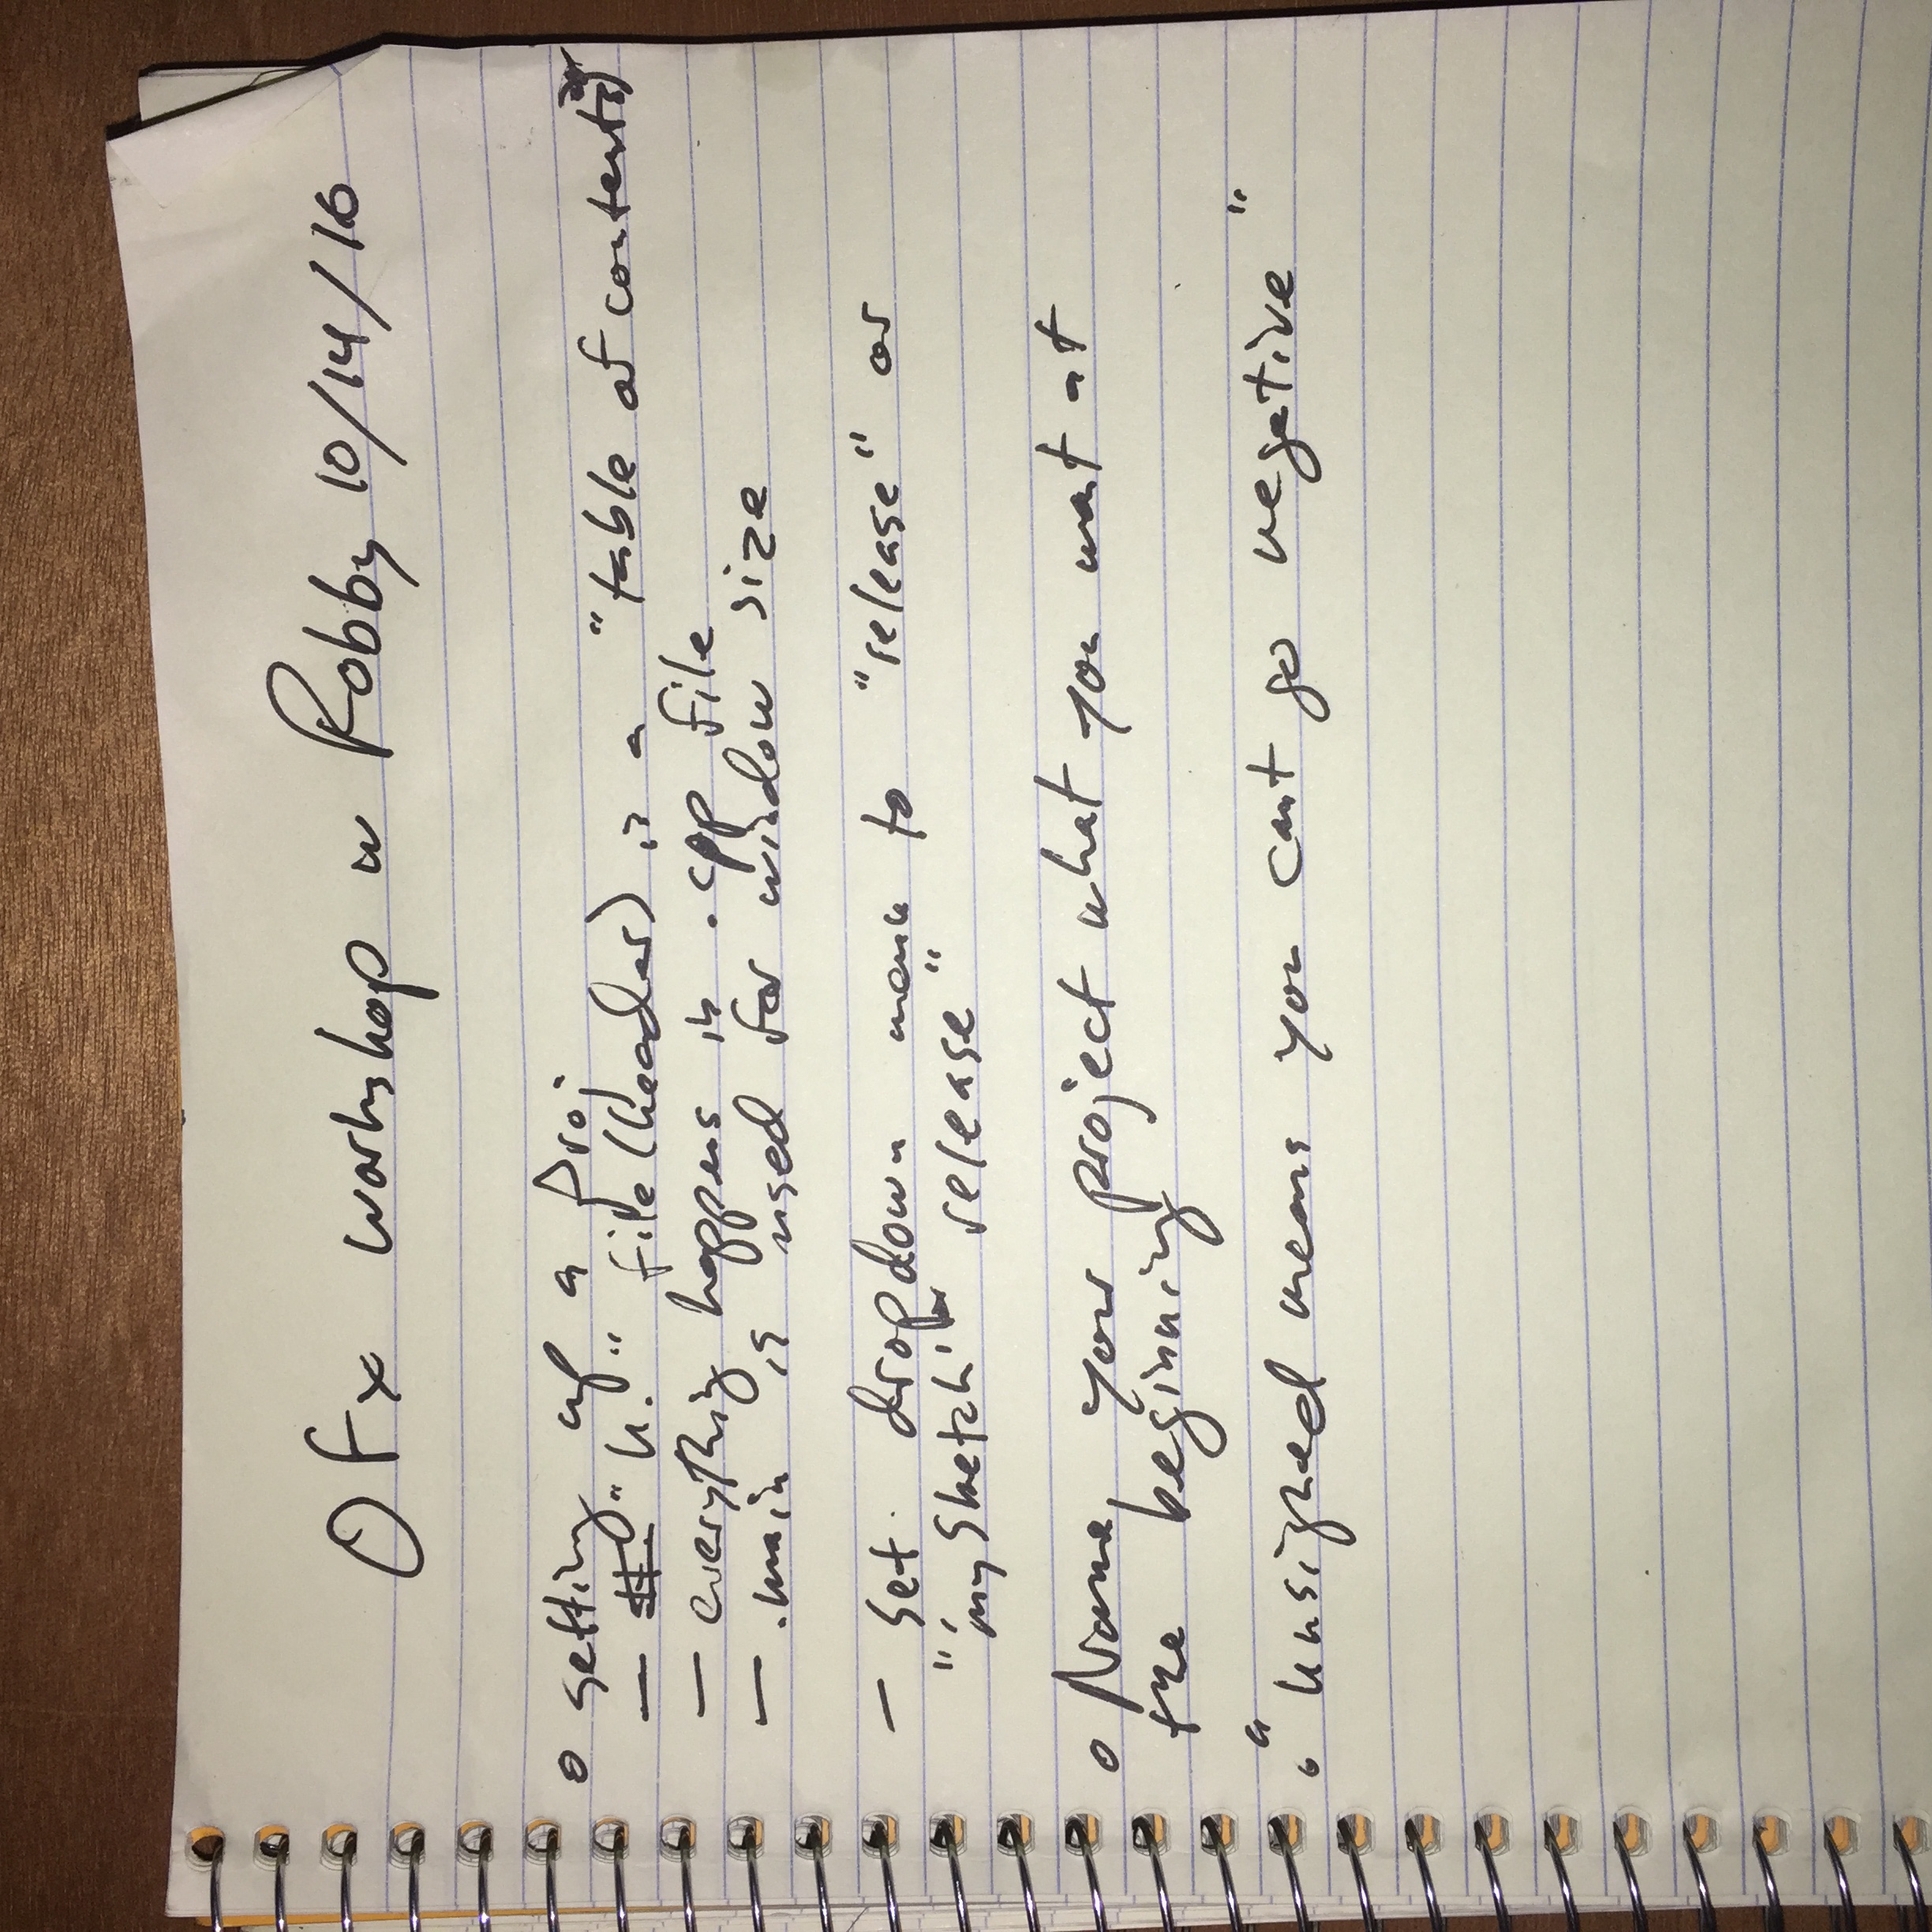 OFx workshop w Robby 10/14/16
o setting up a Proj
— "h." file (header) is a "table of contents"
— everything happens in .cpp file
— .main is used for window size
— set dropdown menu to "release" or
"'mySketch' release"
o Name your project what you want at
the beginning
o "Unsigned means you cant go negative"